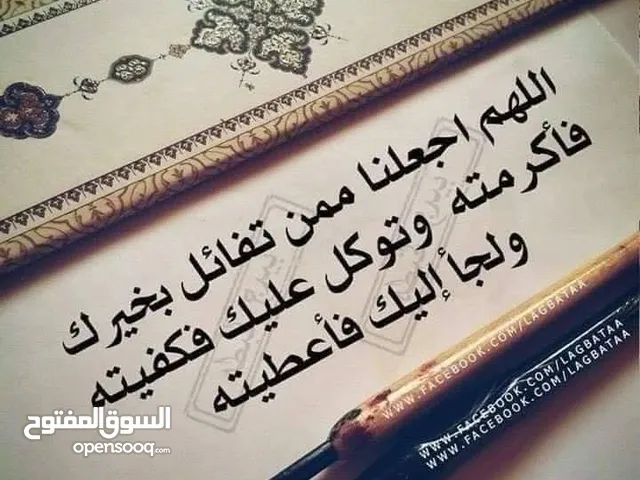 اللهم اجعلنا ممن تفائل بخيرك
فأكرمته وتوكل عليك فكفيته
ولجأ إليك فأعطيته
WWW.FACEBOOK.COM/LAGBATAA
WWW.FACEBOOK.COM/LAGBATAA
WWW.FACEBOOK.COM/LAGBATAA
السوق المفتوح
opensooq.com